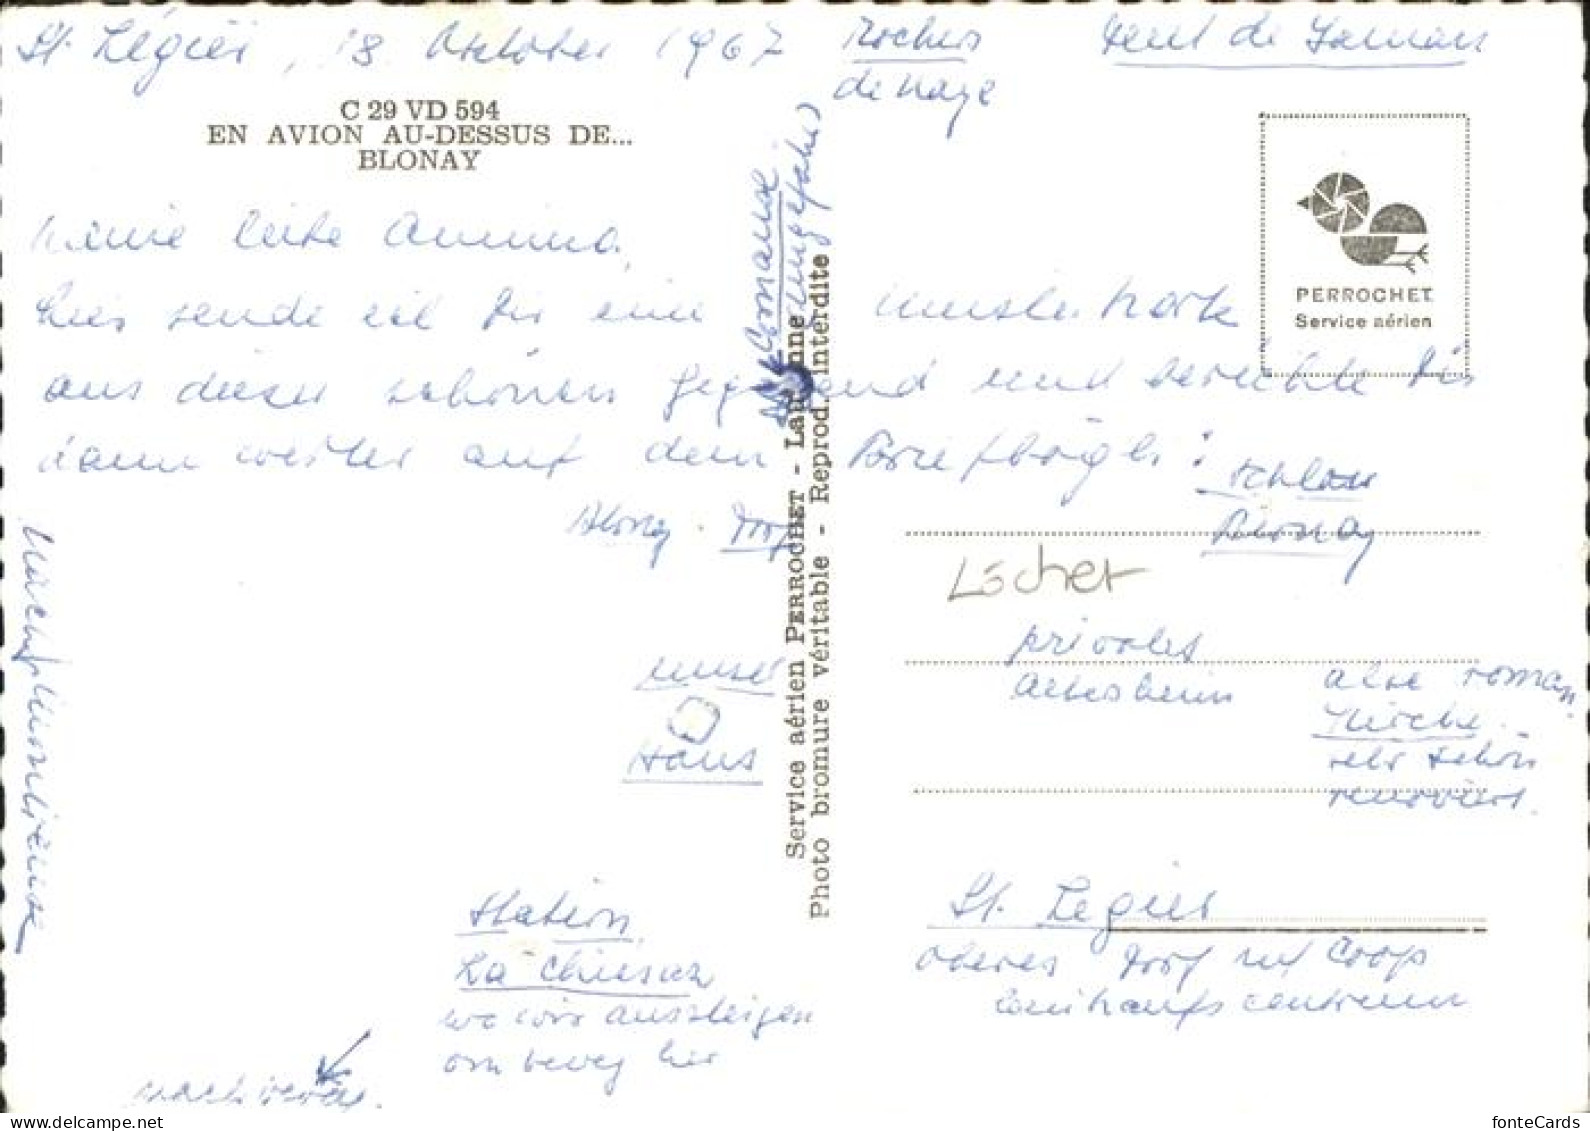 St. Légier, 18. Oktober 1967
Rochers
de Naye
Dent de Jaman
C 29 VD 594
EN AVION AU-DESSUS DE...
BLONAY
PERROCHET
Service aérien
Meine liebe
hier sende ich Dir eine Muster Karte
aus dieser schönen Gegend und berichte Dir
dann weiter auf dem Briefbögli:
Cornaux
Service aérien PERROCHET - Lausanne
Photo bromure véritable - Reprod. interdite
Schloss
Blonay
Blonay - Dorf
Löcher
privates
Altersheim
alte roman.
Kirche
sehr schön
renoviert.
unser
Haus
Station
La Chiésaz
wo wir aussteigen
von Vevey her
St. Légier
oberes Dorf mit Coop
Einkaufscentrum
nach Vevey.
fonteCards
www.delcampe.net